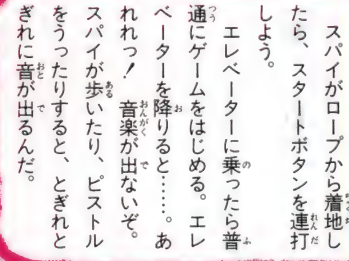 スパイがロープから着地し
たら、スタートボタンを連打
しよう。
エレベーターに乗ったら普
通にゲームをはじめる。エレ
ベーターを降りると……。あ
れれっ！音楽が出ないぞ。
スパイが歩いたり、ピストル
をうったりすると、とぎれと
ぎれに音が出るんだ。